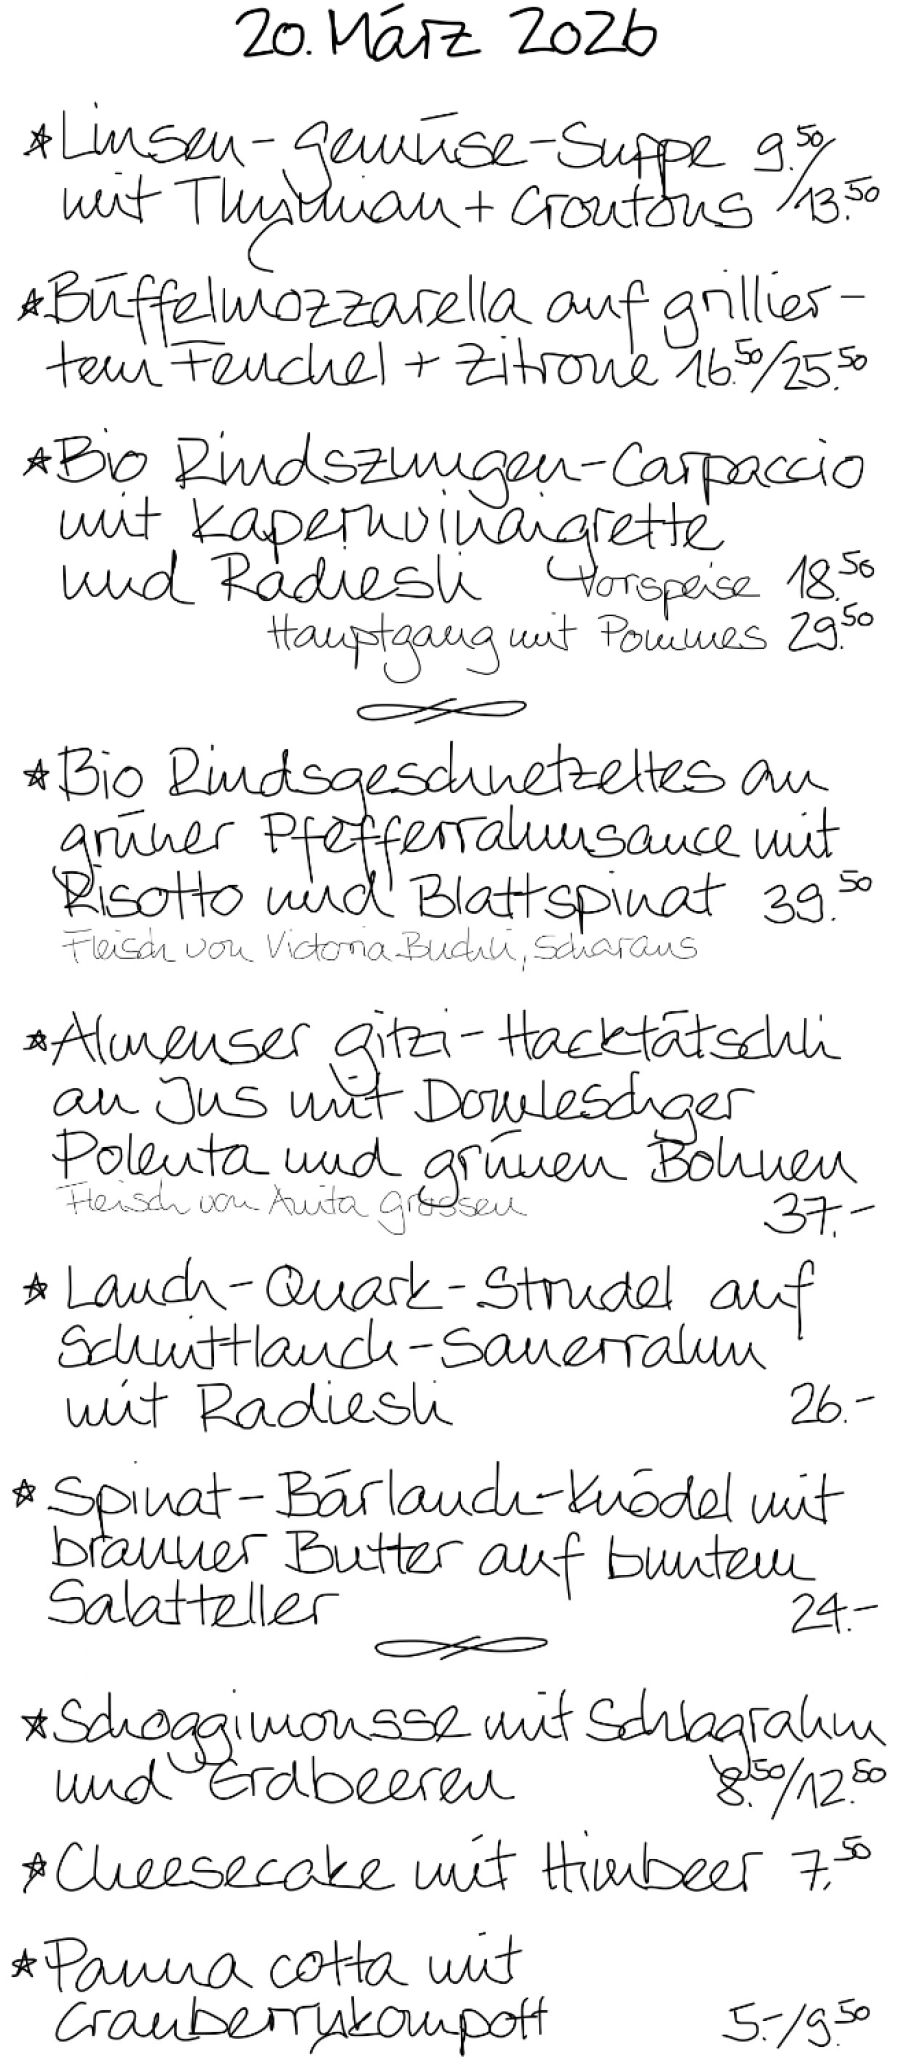 20. März 2026
*Linsen-Gemüse-Suppe 9.50/
mit Thymian + Croutons 13.50
*Büffelmozzarella auf grillier-
tem Fenchel + Zitrone 16.50/25.50
*Bio Rindszungen-Carpaccio
mit Kapernvinaigrette
und Radiesli Vorspeise 18.50
Hauptgang mit Pommes 29.50
*Bio Rindsgeschnetzeltes an
grüner Pfefferrahmsauce mit
Risotto und Blattspinat 39.50
Fleisch von Victoria Buchli, Scharans
*Almenser Gitzi-Hacktätschli
an Jus mit Domleschger
Polenta und grünen Bohnen
Fleisch von Anita Grossen 37.-
*Lauch-Quark-Strudel auf
Schnittlauch-Sauerrahm
mit Radiesli 26.-
*Spinat-Bärlauch-Knödel mit
brauner Butter auf buntem
Salatteller 24.-
*Schoggimousse mit Schlagrahm
und Erdbeeren 8.50/12.50
*Cheesecake mit Himbeer 7.50
*Panna cotta mit
Cranberrykompott 5.-/9.50